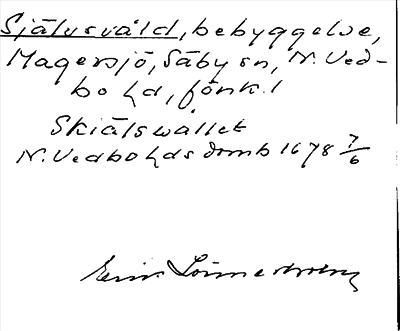 Själusvåld, bebyggelse,
Magersjö, Säby sn, N. Ved-
bo hd, Jönk.l
Skiälswallet
N. Vedbo hds domb 1678 7/6